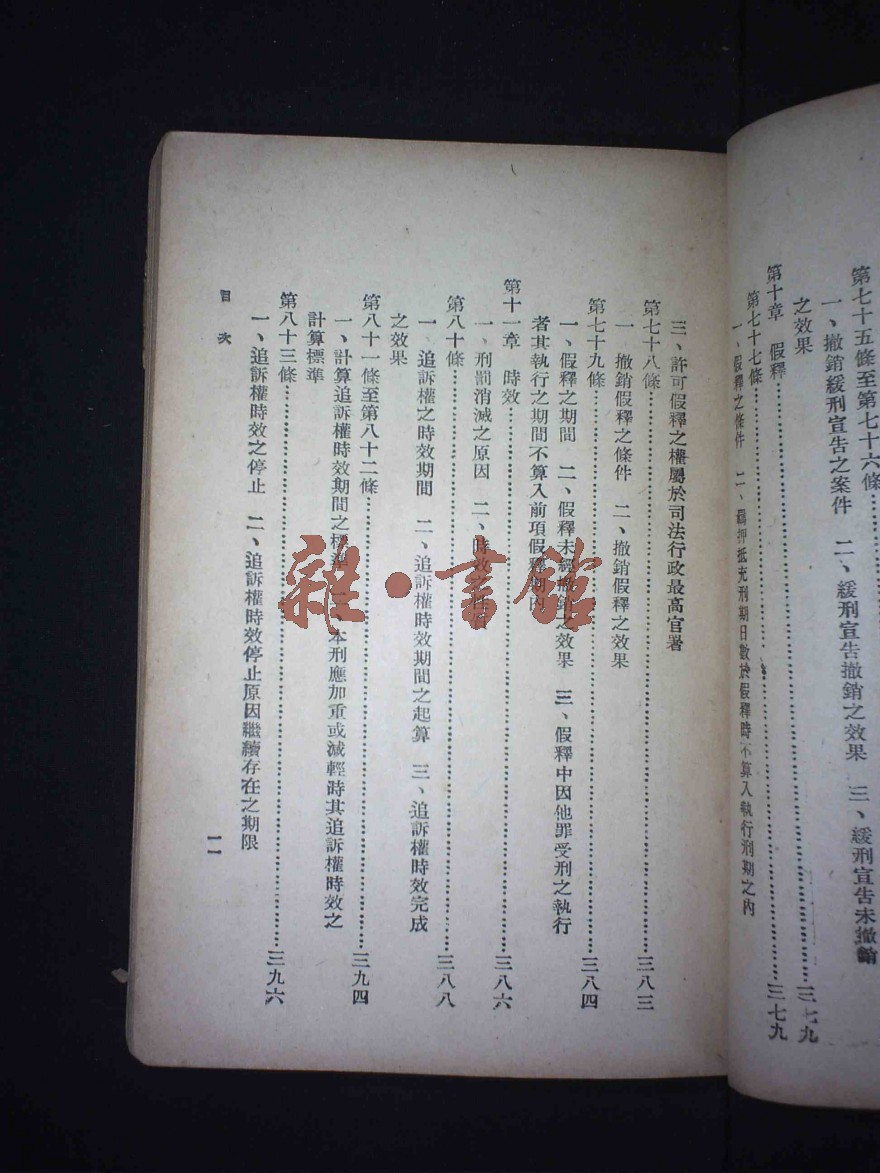 第七十五條至第七十六條
一、撤銷緩刑宣告之案件　二、緩刑宣告撤銷之效果　三、緩刑宣告未撤銷
之效果……三七九
第十章　假釋……三七九
第七十七條
一、假釋之條件　二、羈押抵充刑期日數於假釋時不算入執行刑期之內
三、許可假釋之權屬於司法行政最高官署
第七十八條……三八三
一、撤銷假釋之條件　二、撤銷假釋之效果
第七十九條……三八四
一、假釋之期間　二、假釋未經撤銷之效果　三、假釋中因他罪受刑之執行
者其執行之期間不算入前項假釋期內
第十一章　時效……三八六
一、刑罰消滅之原因　二、時效之
第八十條……三八八
一、追訴權之時效期間　二、追訴權時效期間之起算　三、追訴權時效完成
之效果
第八十一條至第八十二條……三九四
一、計算追訴權時效期間之標準　二、本刑應加重或減輕時其追訴權時效之
計算標準
第八十三條……三九六
一、追訴權時效之停止　二、追訴權時效停止原因繼續存在之期限
目次
一一
雜·書館